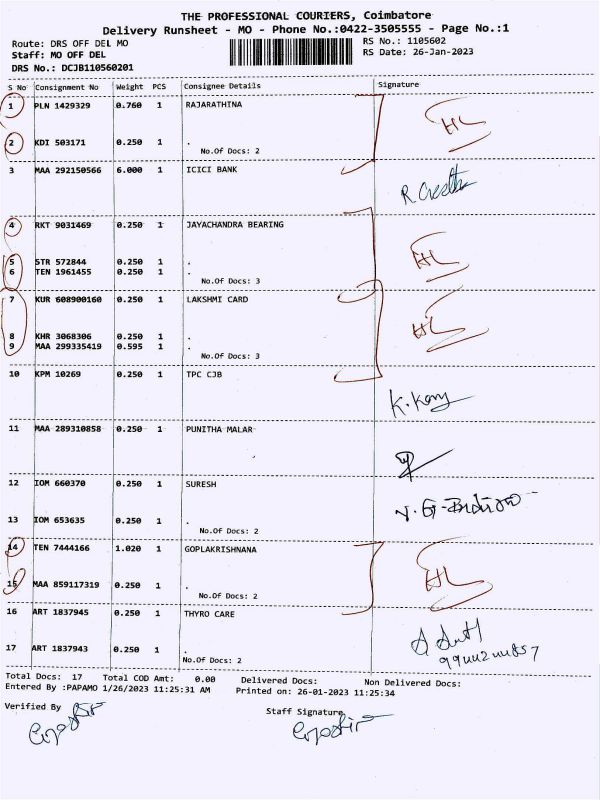 THE PROFESSIONAL COURIERS, Coimbatore
Delivery Runsheet - MO - Phone No.:0422-3505555 - Page No.:1
Route: DRS OFF DEL MO
RS No.: 1105602
Staff: MO OFF DEL
RS Date: 26-Jan-2023
DRS No.: DCJB110560201
S No Consignment No Weight PCS Consignee Details Signature
1 PLN 1429329 0.760 1 RAJARATHINA
HL
2 KDI 503171 0.250 1 .
No.Of Docs: 2
3 MAA 292150566 6.000 1 ICICI BANK
4 RKT 9031469 0.250 1 JAYACHANDRA BEARING
HL
5 STR 572844 0.250 1 .
6 TEN 1961455 0.250 1 .
No.Of Docs: 3
7 KUR 608900160 0.250 1 LAKSHMI CARD
HL
8 KHR 3068306 0.250 1 .
9 MAA 299335419 0.595 1 .
No.Of Docs: 3
10 KPM 10269 0.250 1 TPC CJB
11 MAA 289310858 0.250 1 PUNITHA MALAR
12 IOM 660370 0.250 1 SURESH
13 IOM 653635 0.250 1 .
No.Of Docs: 2
14 TEN 7444166 1.020 1 GOPLAKRISHNANA
HL
15 MAA 859117319 0.250 1 .
No.Of Docs: 2
16 ART 1837945 0.250 1 THYRO CARE
17 ART 1837943 0.250 1 .
No.Of Docs: 2
Total Docs: 17 Total COD Amt: 0.00 Delivered Docs: Non Delivered Docs:
Entered By :PAPAMO 1/26/2023 11:25:31 AM Printed on: 26-01-2023 11:25:34
Verified By
Staff Signature